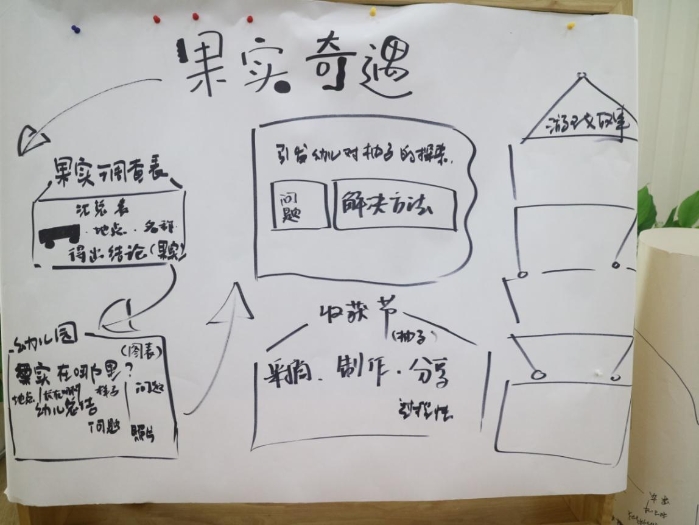 果实奇遇
果实调查表
汇总表
·地点·名称
得出结论(果实)
幼儿园
(图表)
果实在哪里?
地点
样子
问题
幼儿总结
问题
照片
引发幼儿对柚子的探索.
问题
解决方法
收获节
(柚子)
采摘、制作·分享